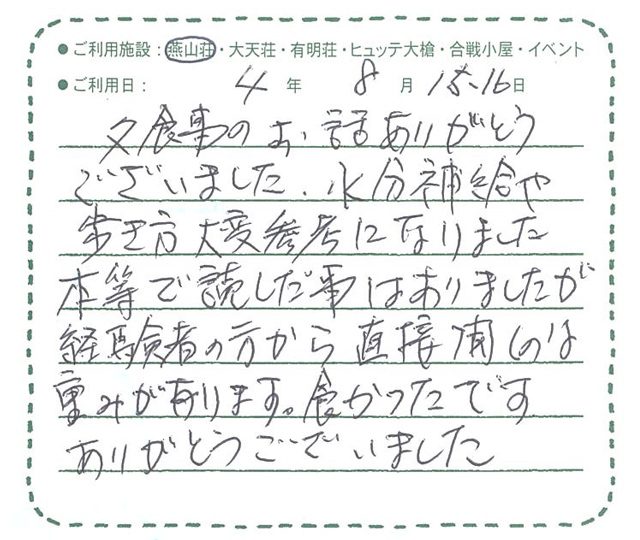 ●ご利用施設：燕山荘・大天荘・有明荘・ヒュッテ大槍・合戦小屋・イベント
●ご利用日： 4 年 8 月 15.16日
夕食事のお話ありがとう
ございました。水分補給や
歩き方大変参考になりました
本等で読しだ事はありましたが
経験者の方から直接聞くのは
重みがあります。良かったです
ありがとうございました